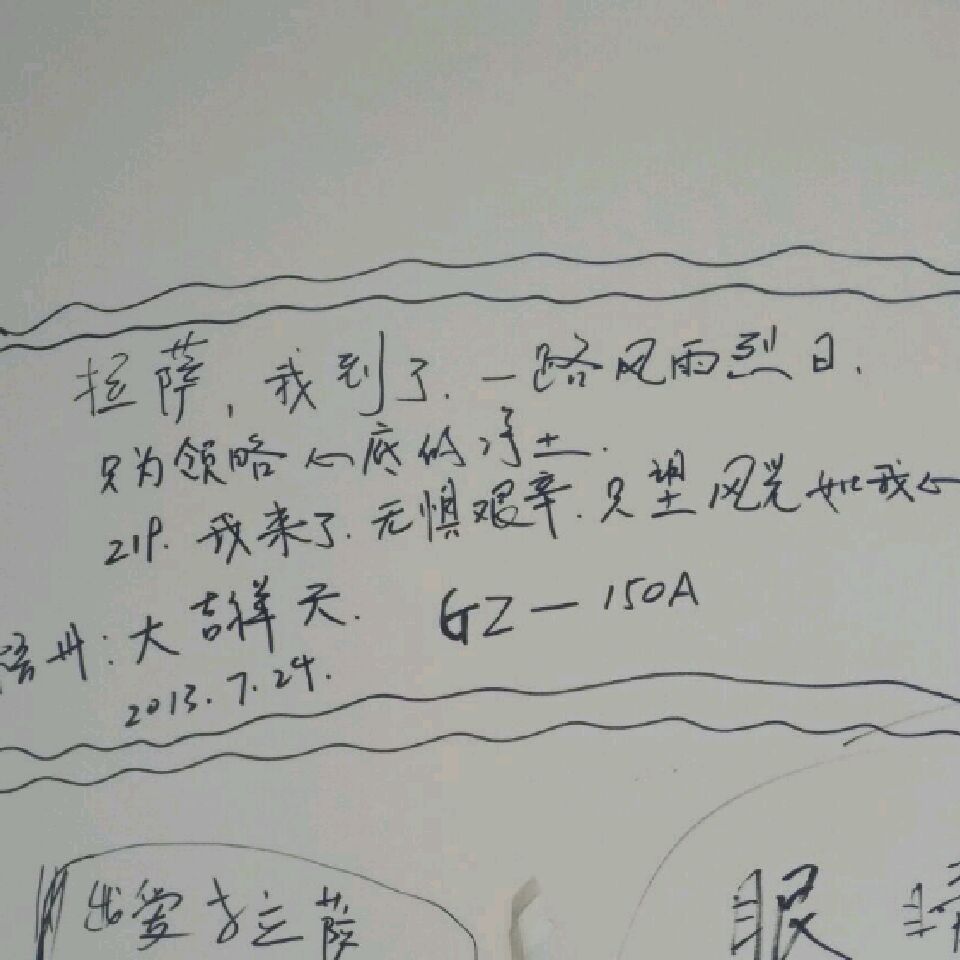 拉萨,我到了.一路风雨烈日.
只为领略心底的净土.
219.我来了.无惧艰辛.只望风光如我心
大吉祥天. GZ—150A
2013.7.24.
爱拉萨
眼睛